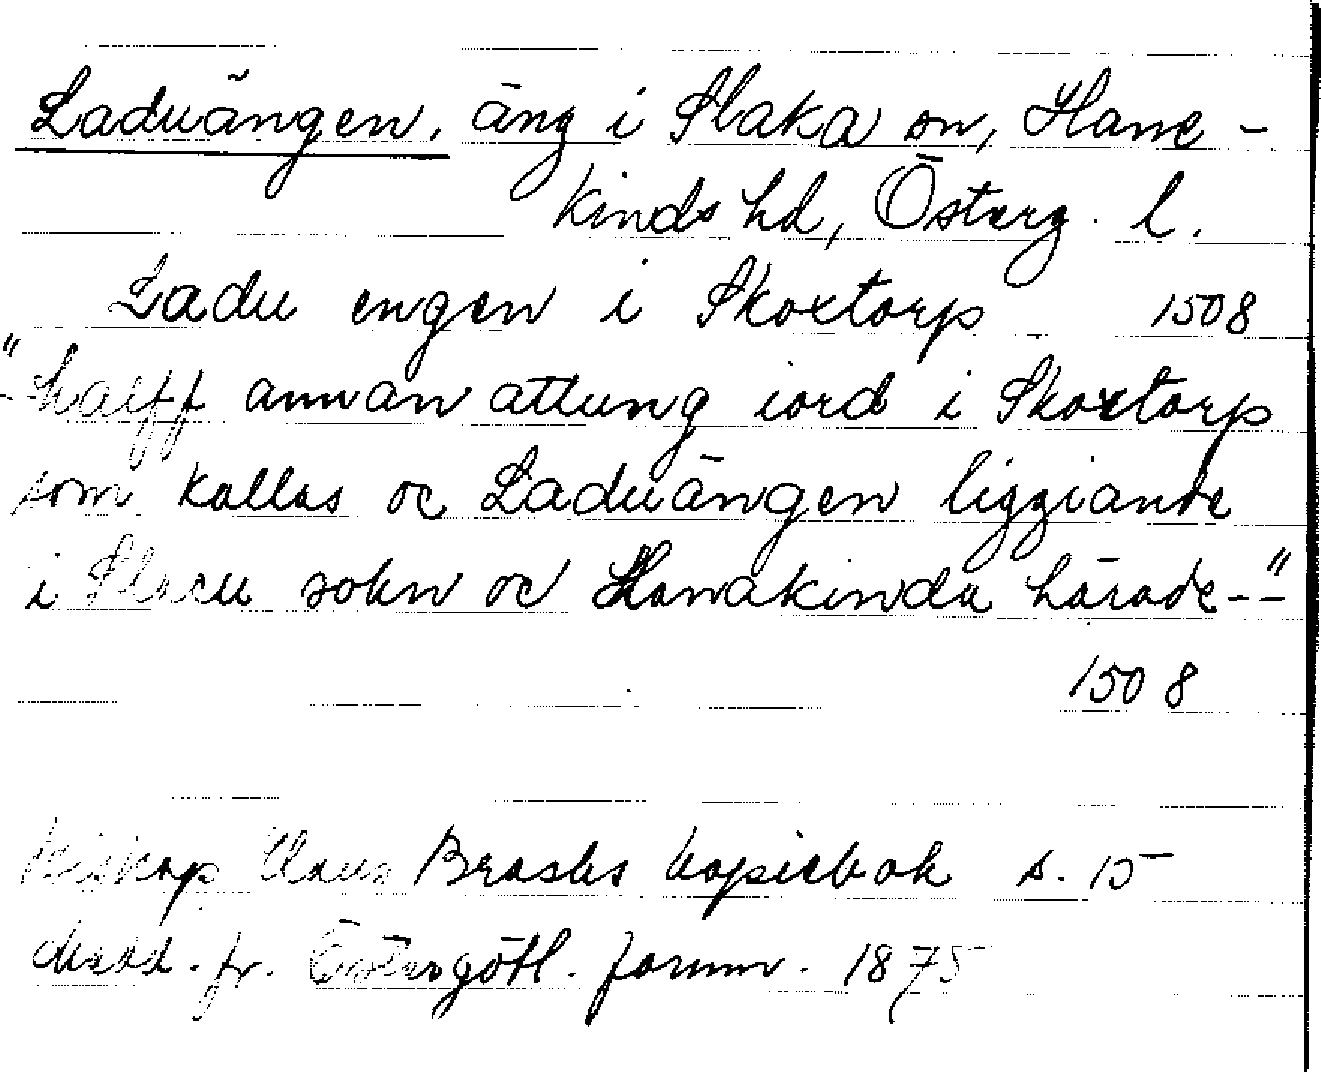 Laduängen, äng i Slaka sn, Hane-
kinds hd, Österg. l.
Ladu engen i Skoxtorp 1508
"- halff annan attung iord i Skoxtorp
som kallas oc Laduängen liggiande
i Slacu sokn oc Hanakinda härade--"
1508
Biskop Claus Brasks kopiebok s. 15
Medd. fr. Östergötl. fornm. 1875